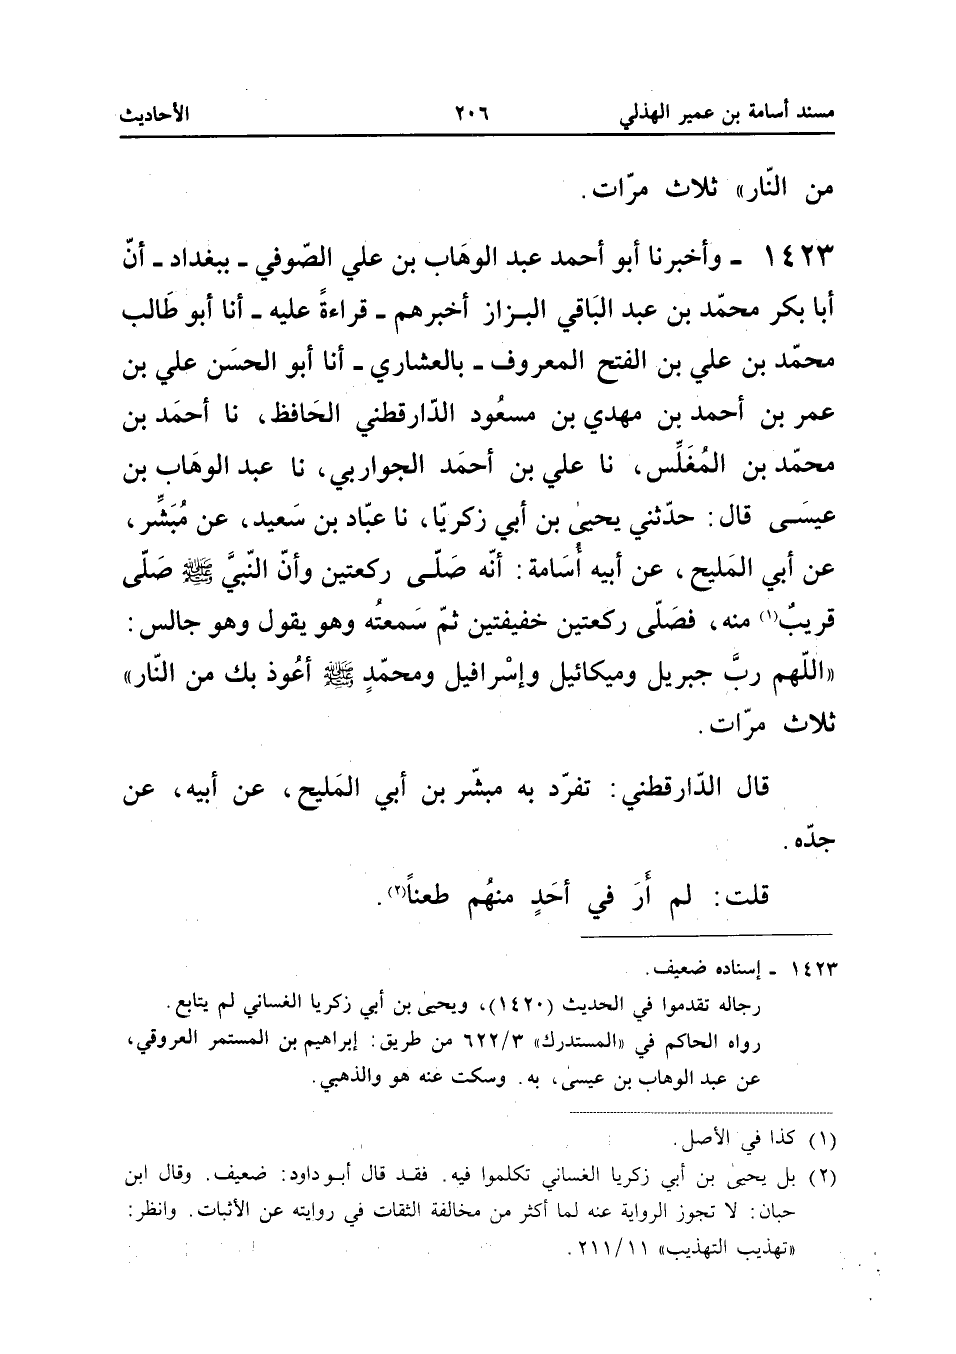 مسند أسامة بن عمير الهذلي ٢٠٦ الأحاديث
من النّار» ثلاث مرّات.
١٤٢٣ ـ وأخبرنا أبو أحمد عبد الوهَاب بن علي الصّوفي ـ ببغداد ـ أنّ
أبا بكر محمّد بن عبد البَاقي البـزاز أخبرهم ـ قراءةً عليه ـ أنا أبو طَالب
محمّد بن علي بن الفتح المعروف ـ بالعشاري ـ أنا أبو الحسَن علي بن
عمر بن أحمد بن مهدي بن مسعُود الدّارقطني الحَافظ، نا أحمَد بن
محمّد بن المُغَلِّس، نا علي بن أحمَد الجواربي، نا عبد الوهَاب بن
عيسَـى قال: حدّثني يحيىٰ بن أبي زكريّا، نا عبّاد بن سَعيد، عن مُبَشِّر،
عن أبي المَليح، عن أبيه أُسَامة: أنّه صَلّـى ركعتين وأنّ النّبيَّ ﷺ صَلّى
قريبٌ(١) منه، فصَلّى ركعتين خفيفتين ثمّ سَمعتُه وهو يقول وهو جالس:
«اللّهم ربَّ جبريل وميكائيل وإسْرافيل ومحمّدٍ ﷺ أعُوذ بك من النّار»
ثلاث مرّات.
قال الدّارقطني: تفرّد به مبشّر بن أبي المَليح، عن أبيه، عن
جدّه.
قلت: لم أَرَ في أحَدٍ منهُم طعناً(٢).
١٤٢٣ ـ إسناده ضعيف.
رجاله تقدموا في الحديث (١٤٢٠)، ويحيىٰ بن أبي زكريا الغساني لم يتابع.
رواه الحاكم في «المستدرك» ٦٢٢/٣ من طريق: إبراهيم بن المستمر العروقي،
عن عبد الوهاب بن عيسىٰ، به. وسكت عنه هو والذهبي.
(١) كذا في الأصل.
(٢) بل يحيىٰ بن أبي زكريا الغساني تكلموا فيه. فقـد قال أبـو داود: ضعيف. وقال ابن
حبان: لا تجوز الرواية عنه لما أكثر من مخالفة الثقات في روايته عن الأثبات. وانظر:
«تهذيب التهذيب» ٢١١/١١.